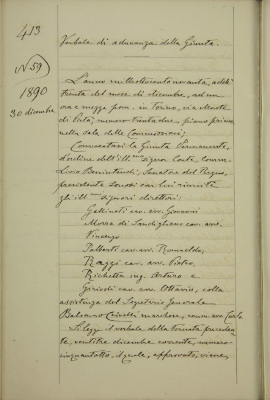 413
N 59
1890
30 dicembre
Verbale di adunanza della Giunta.
L'anno milleottocento novanta, addì
trenta del mese di dicembre, ad un'
ora e mezza pom. in Torino, via Monte
di Pietà, numero trentadue, piano primo
nella sala delle Commissioni;
Convocatasi la Giunta Permanente,
d'ordine dell'ill.mo signor Conte Comm.
Livio Benintendi, Senatore del Regno,
presidente, sonosi ivi riuniti
gli ill.mi signori direttori:
Galleati cav. avv. Giovanni
Morra di cav. avv.
Vincenzo
cav. avv. Romualdo,
Raggi cav. avv. Pietro,
Richetta ing. Arturo e
cav. avv. Ottavio, colla
assistenza del Segretario Generale
Balsamo Crivelli marchese, comm. avv. Carlo.
Si legge il verbale della tornata preceden-
te, ventitre dicembre corrente, numero
cinquantotto, il quale, approvato, viene